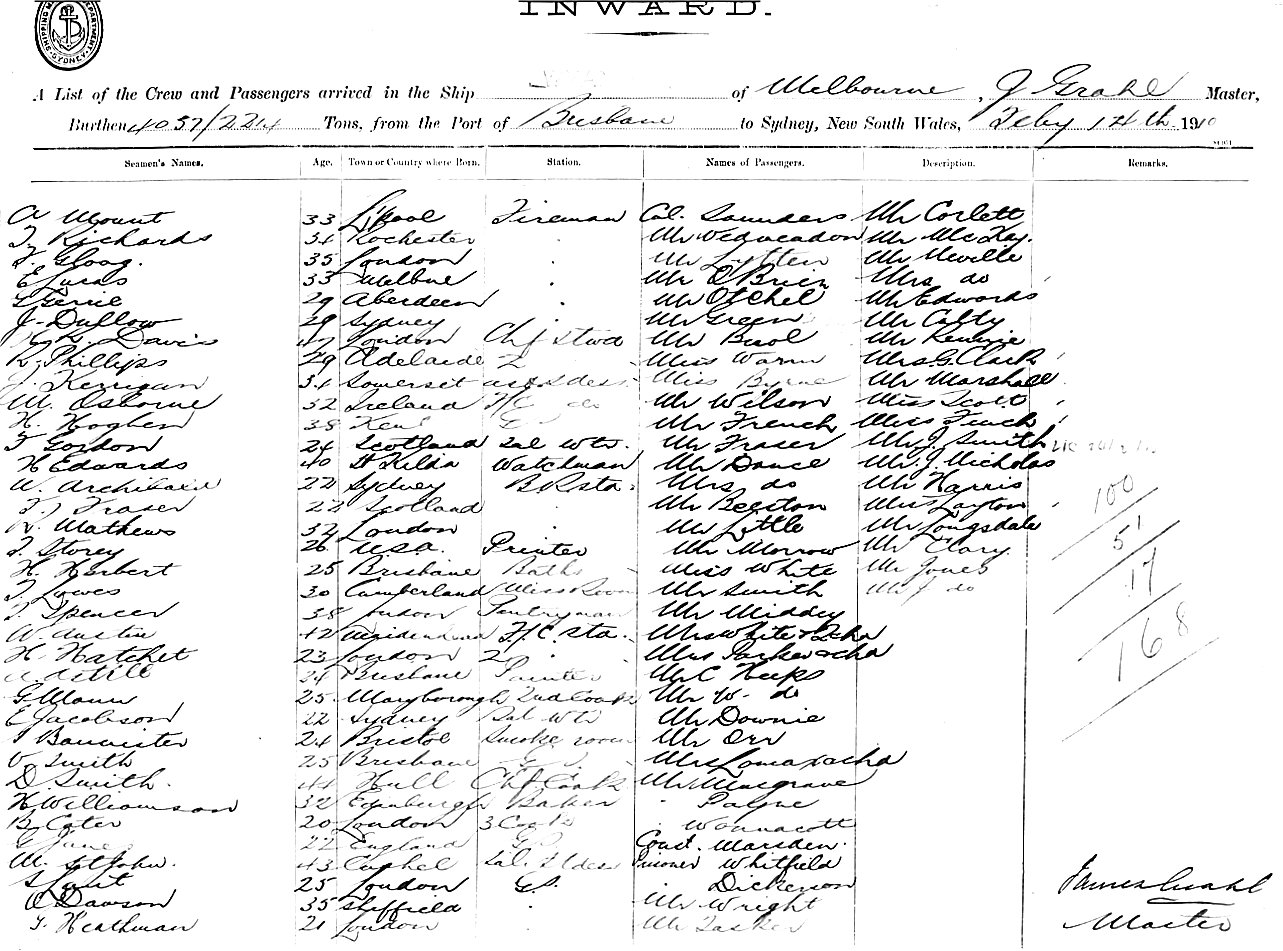 INWARD.
SHIPPING DEPARTMENT SYDNEY
A List of the Crew and Passengers arrived in the Ship of Melbourne, J Grahl Master,
Burthen 4057/2214 Tons, from the Port of Brisbane to Sydney, New South Wales, Feby 14th 1910
Seamen's Names. Age. Town or Country where Born. Station. Names of Passengers. Description. Remarks.
A Mount 33 L'pool Fireman Col. Saunders Mr Corlett
T. Richards 34 Rochester . Mr Mr McKay.
Gloag. 35 London . Mr Lytten Mr Neville
E Lucas 33 Melbne . Mr O'Brien Mrs do
29 Aberdeen . Mr Otchel Mr Edwards
J. Dullow 29 Sydney Mr Green Mr Calty
Davis 47 London Chf Stwd Mr Mr Rennie
R. Phillips 29 Adelaide 2 Miss Warin Mrs G. Clark
J. Kerrigan 34 Somerset Miss Byrne Mr Marshall
M. Osborne 32 Ireland F/C do Mr Wilson Miss Scott
H. Hogben 38 Kent Mr French Miss Finch
T Gordon 24 Scotland Sal Wtr. Mr Fraser Mr J. Smith
H Edwards 40 St Kilda Watchman Mr Dance Mr. J. Nicholas
W. Archibald 22 Sydney B.R sta. Mrs do Mr Harris
T. J Fraser 22 Scotland . Mr Beeston Miss Layton 100
R. Mathews 32 London . Mr Little Mr Longsdale
T. Storey 26 U.S.A. Printer Mr Morrow Mr Clary 51
H. Herbert 25 Brisbane Baths Miss White Mr Jones
T Lowes 30 Cumberland Mess Room Mr Smith do 17
T. Spencer 38 London Pantryman Mr Middey
W. Austin 42 Maidenhead F/C sta. Mrs White & 2 chd 168
H. Hatchet 23 London 2 . Mrs Parker & chd
24 Brisbane Painter Mr C Heeps
G. Mann 25 Maryborough 2nd Cook Mr W. do
E Jacobson 22 Sydney Sal Wtr Mr Downie
Bannister 24 Bristol Smoke room Mr Orr
V Smith 25 Brisbane Mrs Lomax & chd
D. Smith. 44 Hull Chf Cook Mr Musgrave
H Williamson 32 Edinburgh Baker . Payne
B. Cater 20 London 3 Cook . Wonnacott
Jane 22 England Const. Marsden.
M. St John. 43 Cashel Prisoner Whitfield
25 London G.S. Dickenson James Grahl
O Dawson 35 Sheffield Mr Wright Master
F. Heathman 21 London Mr Tasker